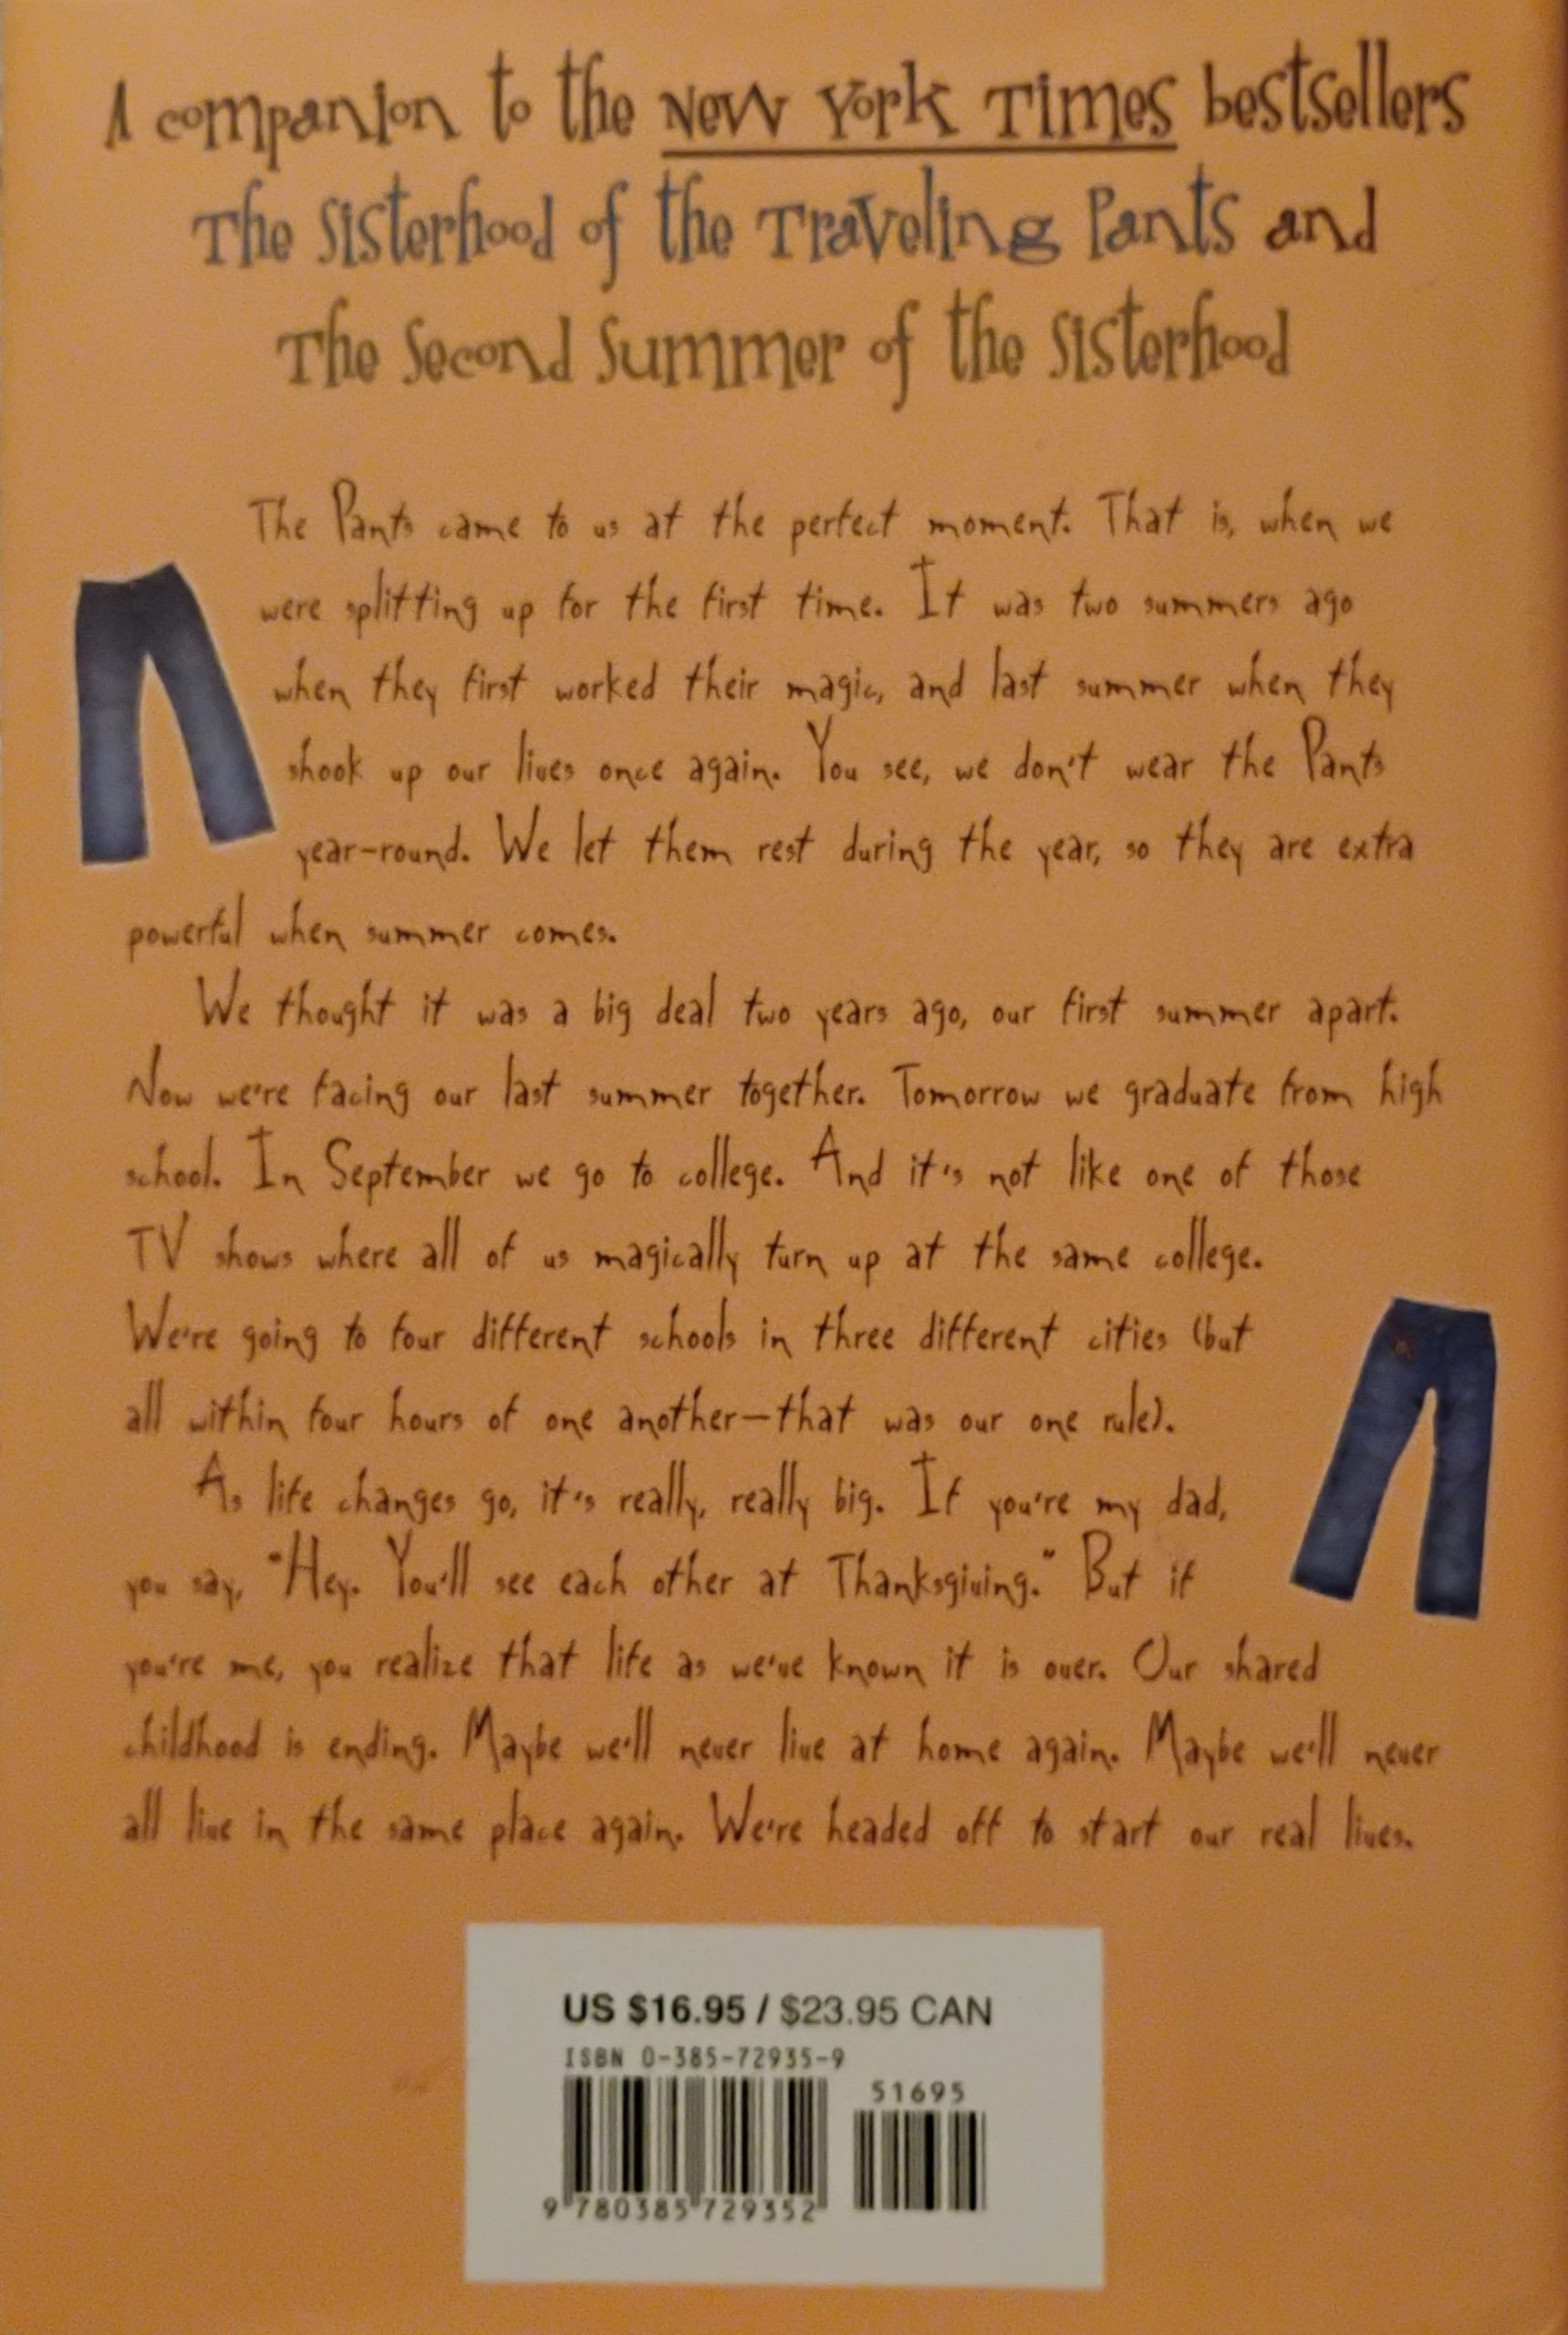 A companion to the New York Times bestsellers
The Sisterhood of the Traveling Pants and
The Second Summer of the Sisterhood
The Pants came to us at the perfect moment. That is, when we
were splitting up for the first time. It was two summers ago
when they first worked their magic, and last summer when they
shook up our lives once again. You see, we don't wear the Pants
year-round. We let them rest during the year, so they are extra
powerful when summer comes.
We thought it was a big deal two years ago, our first summer apart.
Now we're facing our last summer together. Tomorrow we graduate from high
school. In September we go to college. And it's not like one of those
TV shows where all of us magically turn up at the same college.
We're going to four different schools in three different cities (but
all within four hours of one another—that was our one rule).
As life changes go, it's really, really big. If you're my dad,
you say, "Hey. You'll see each other at Thanksgiving." But if
you're me, you realize that life as we've known it is over. Our shared
childhood is ending. Maybe we'll never live at home again. Maybe we'll never
all live in the same place again. We're headed off to start our real lives.
US $16.95 / $23.95 CAN
ISBN 0-385-72935-9
51695
9 780385 729352